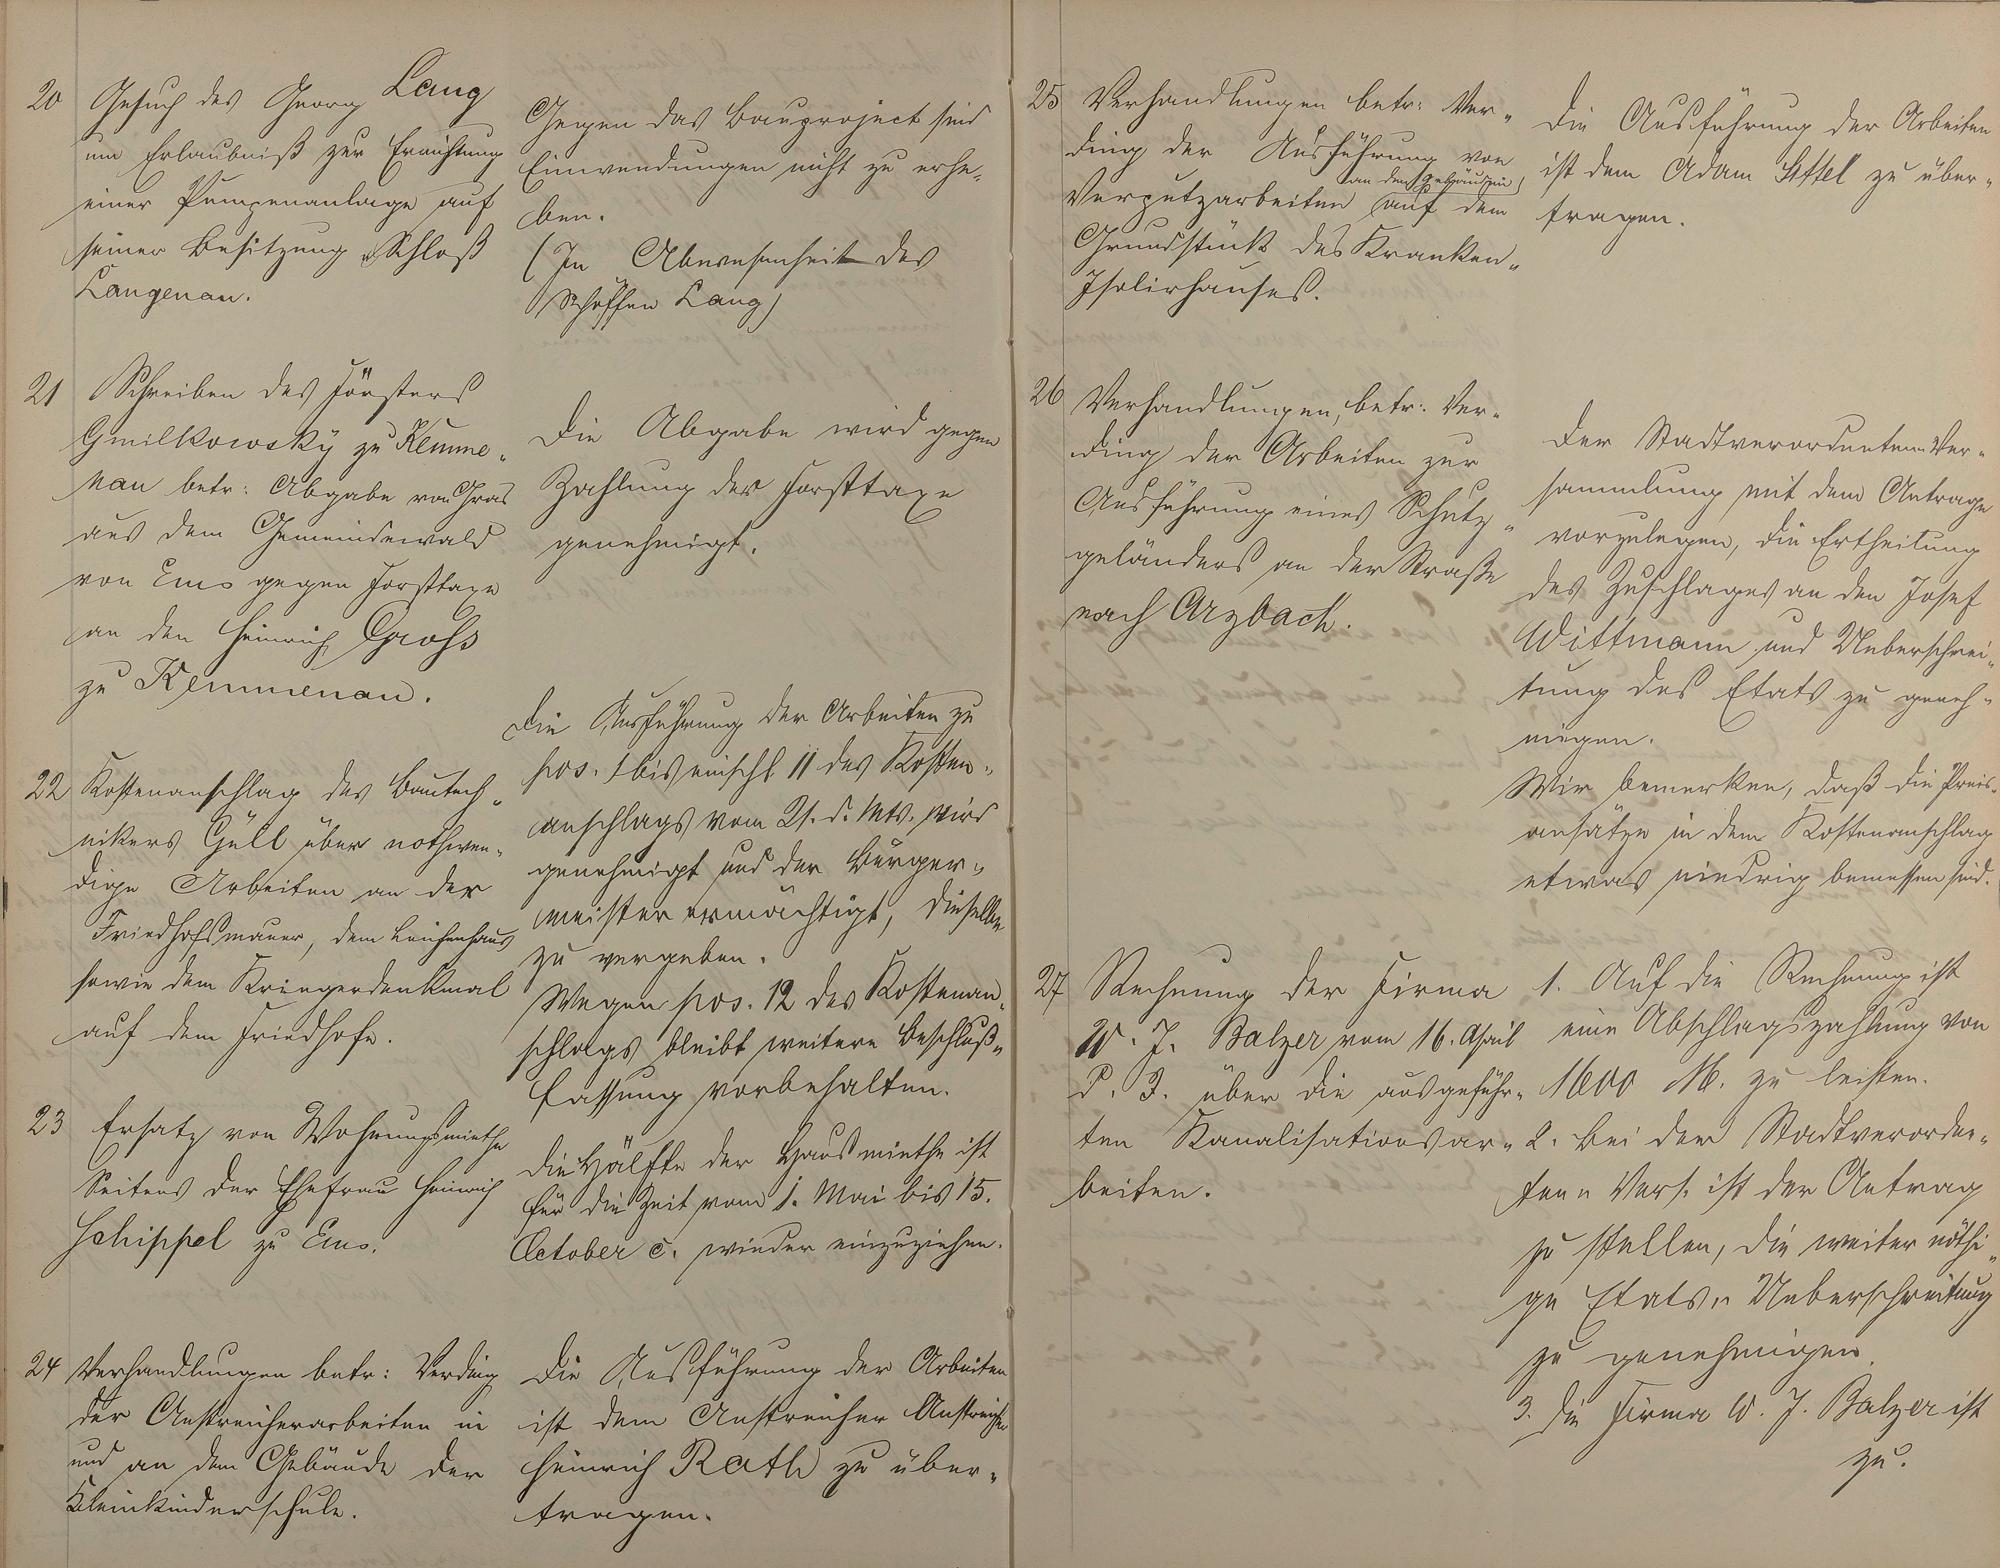 20
Gesuch des Georg Lang
um Erlaubniß zur Errichtung
einer Pumpenanlage auf
seiner Besitzung Schloß
Langenau.
Gegen das Bauproject sind
Einwendungen nicht zu erhe-
ben.
(In Abwesenheit des
Schöffen Lang)
21
Schreiben des Försters
Gmilkowsky zu Kemme-
nau betr: Abgabe von Gras
aus dem Gemeindewald
von Ems gegen Forsttaxe
an den Heinrich Groß
zu Kemmenau.
Die Abgabe wird gegen
Zahlung der Forsttaxe
genehmigt.
22
Kostenanschlag des Bautech-
nikers Güll über nothwen-
dige Arbeiten an der
Friedhofsmauer, dem Leichenhaus
sowie dem Kriegerdenkmal
auf dem Friedhofe.
Die Ausführung der Arbeiten zu
pos. 1 bis einschl 11 des Kosten-
anschlags vom 21. d. Mts. wird
genehmigt und der Bürger-
meister ermächtigt, dieselben
zu vergeben.
Wegen pos. 12 des Kostenan-
schlags bleibt weitere Beschluß-
fassung vorbehalten.
23
Ersatz von Wohnungsmiethe
Seitens der Ehefrau Heinrich
Schippel zu Ems.
Die Hälfte der Hausmiethe ist
für die Zeit vom 1. Mai bis 15.
October c. wieder einzuziehen.
24
Verhandlungen betr: Verding
der Anstreicherarbeiten in
und an dem Gebäude der
Kleinkinderschule.
Die Ausführung der Arbeiten
ist dem Anstreicher Anstreicher
Heinrich Rath zu über-
tragen.
25
Verhandlungen betr: Ver-
ding der Ausführung von
an den Gebäuden
Verputzarbeiten auf dem
Grundstück des Kranken-
Isolirhauses.
Die Ausführung der Arbeiten
ist dem Adam Sittel zu über-
tragen.
26
Verhandlungen, betr: Ver-
ding der Arbeiten zur
Ausführung eines Schutz-
geländers an der Straße
nach Arzbach.
Der Stadtverordneten-Ver-
sammlung mit dem Antrage
vorzulegen, die Ertheilung
des Zuschlages an den Josef
Wittmann und Ueberschrei-
tung des Etats zu geneh-
migen.
Wir bemerken, daß die Preis-
ansätze in dem Kostenanschlag
etwas niedrig bemessen sind.
27
Rechnung der Firma
W. J. Balzer vom 16. April
d. J. über die ausgeführ-
ten Kanalisationsar-
beiten.
1. Auf die Rechnung ist
eine Abschlagszahlung von
1600 M. zu leisten.
2. Bei der Stadtverordne-
ten-Vers. ist der Antrag
zu stellen, die weiter nöthi-
ge Etats-Ueberschreitung
zu genehmigen.
3. Die Firma W. J. Balzer ist
zu.